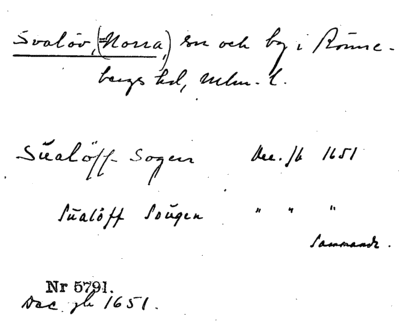 Svalöv, (Norra), sn och by i Rönne-
bergs hd, Mlm. l.
Süalöff Sogen Dec. jb 1651
Süalöff Soügen " " "
Sammandr.
Nr 5791.
Dec. jb 1651.